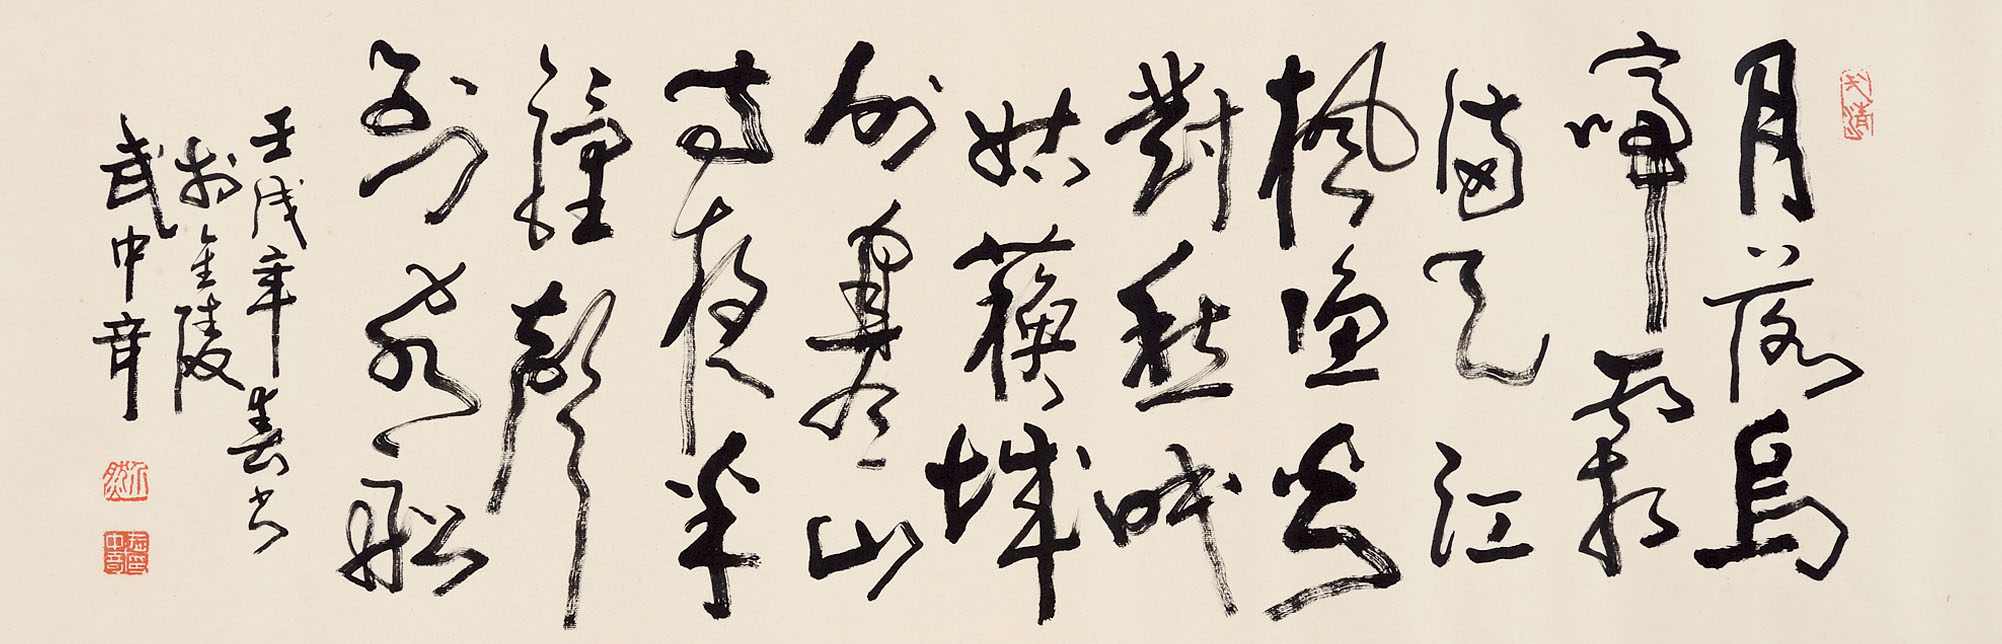 月落烏
啼霜
滿天江
楓漁火
對愁眠
姑蘇城
外寒山
寺夜半
鐘聲
到客船
壬戌年春書
於金陵
武中奇
武中奇印